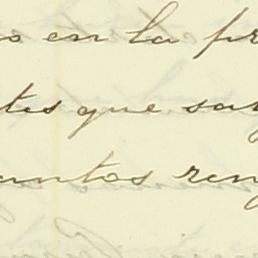 o en la pr
tes que sa
antos ren